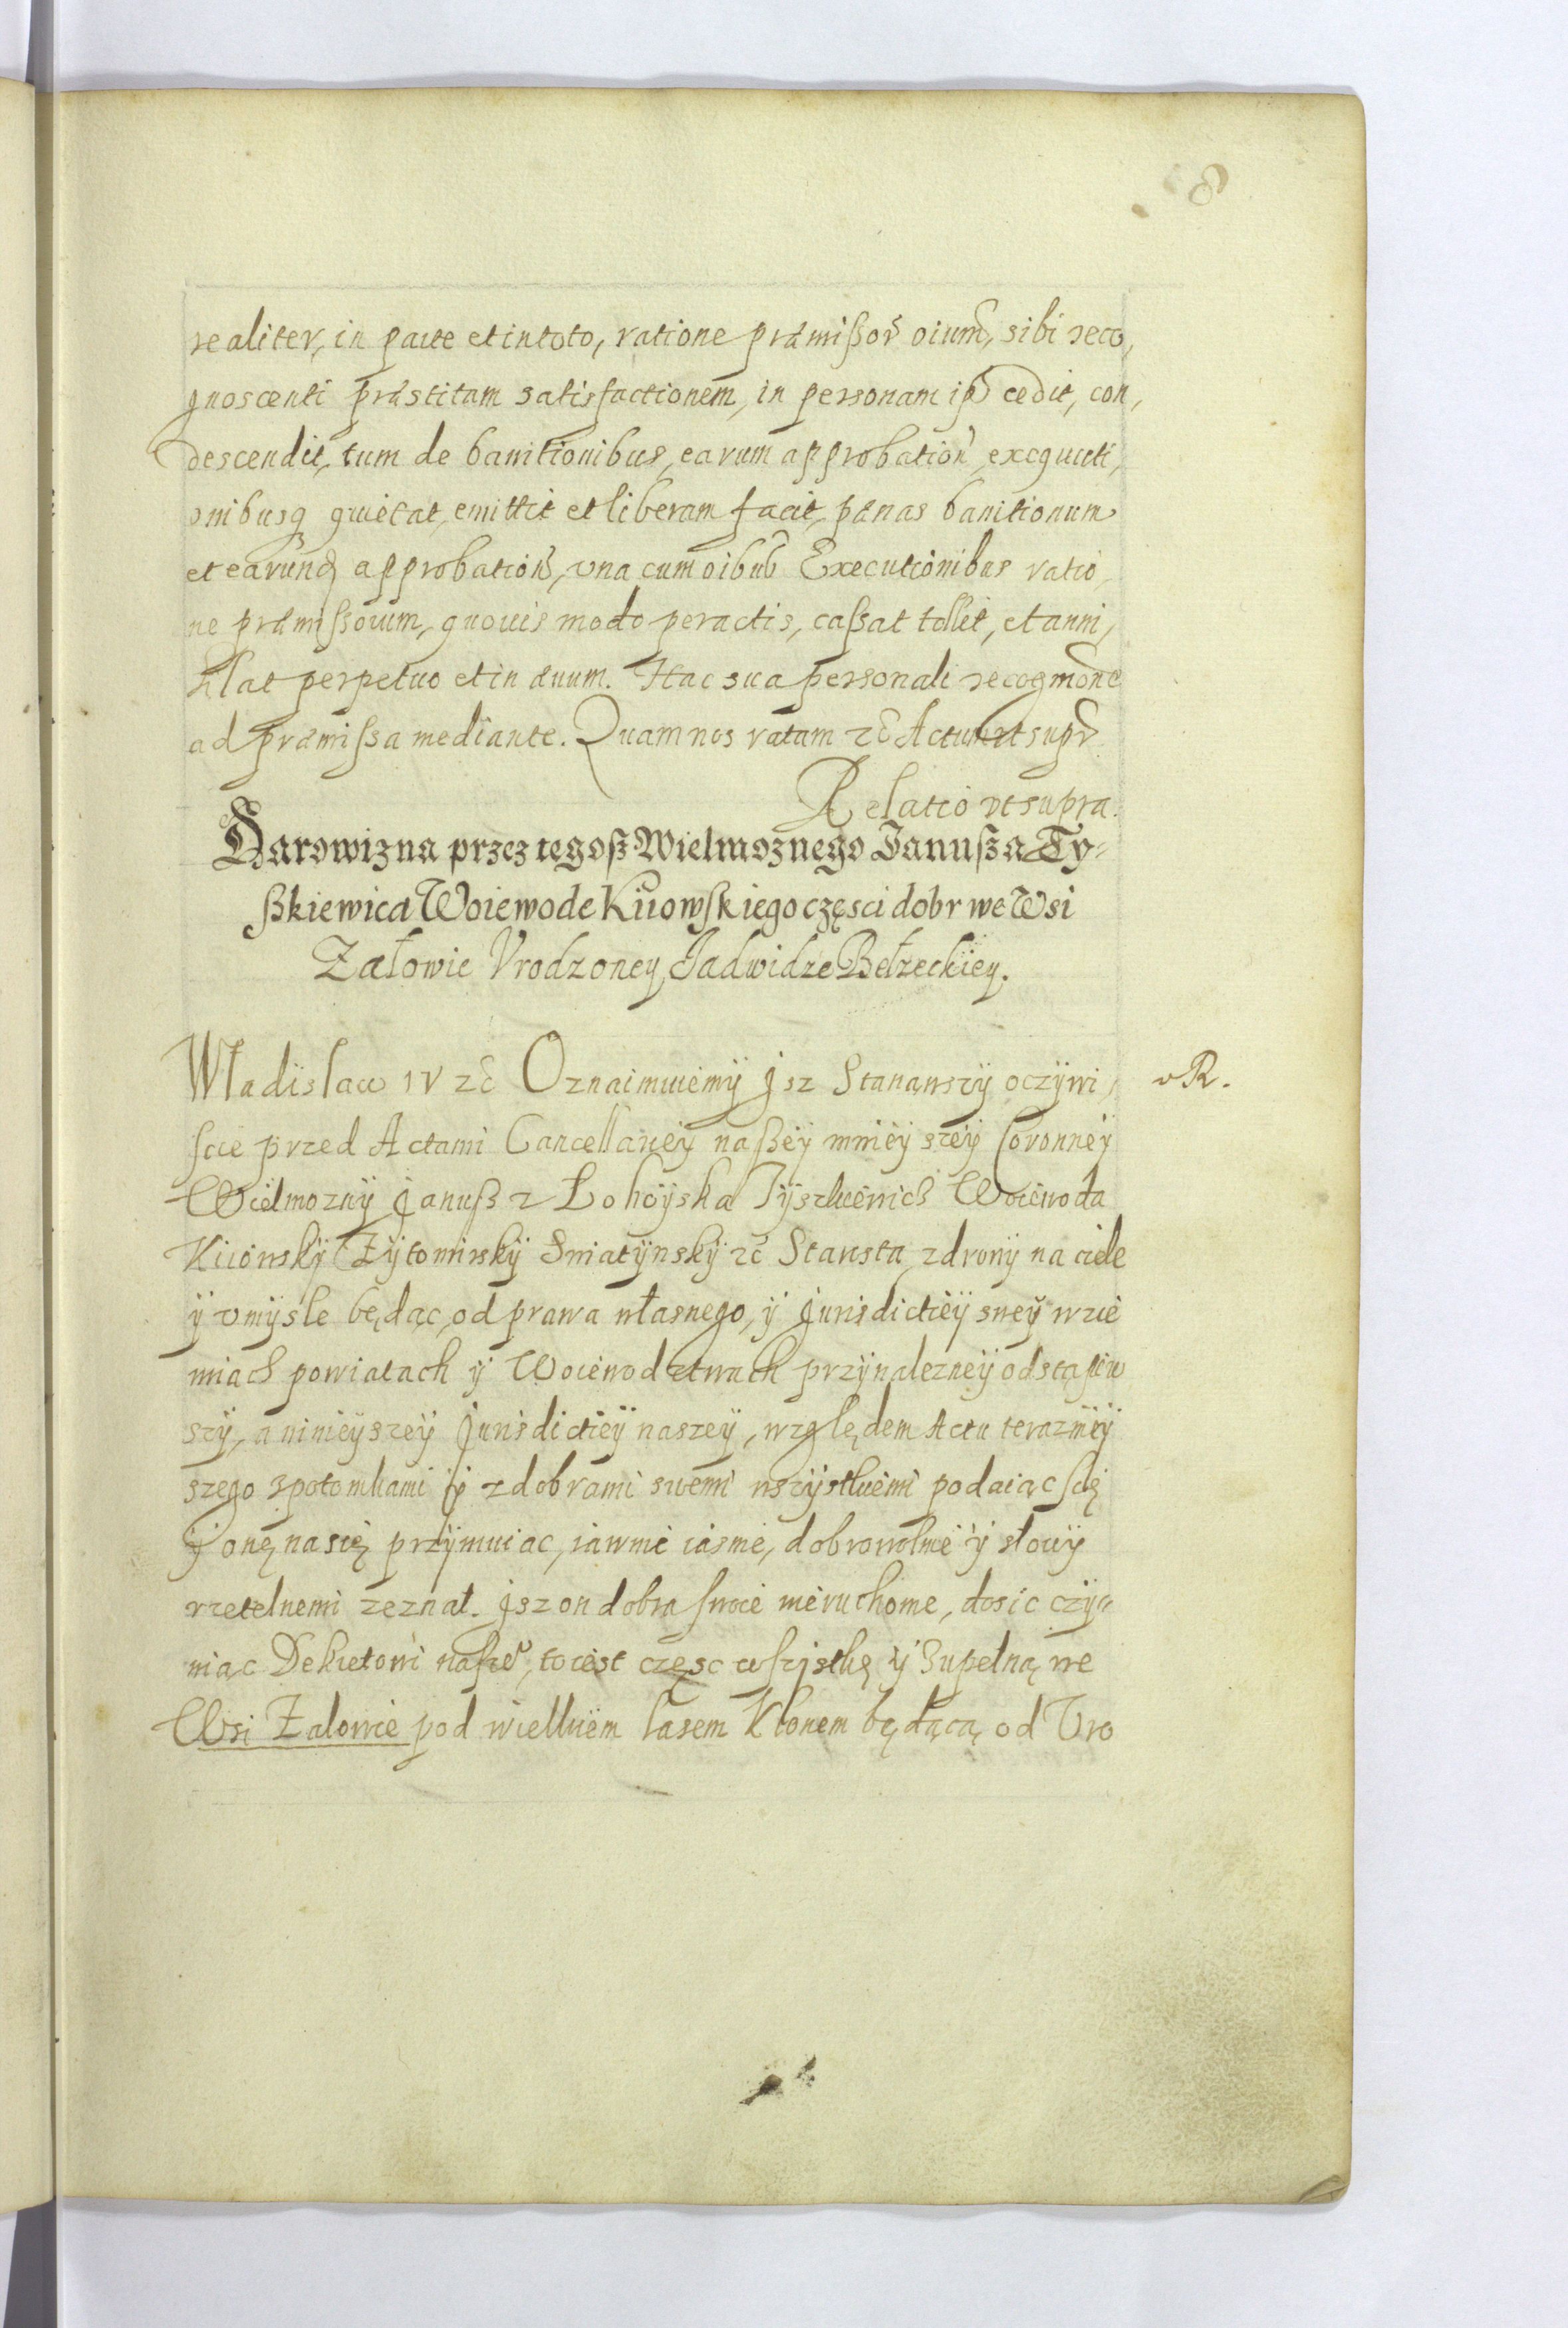 8
realiter, in parte et in toto, ratione præmißor oium, sibi reco,
gnoscenti præstitam satisfactionem, in personam ip cedit, con,
descendit, tum de banitionibus, earum approbation, exequuti,
onibusq quietat, emittit et liberam facit, pænas banitionum
et earund approbation, vna cum oibus Executionibus ratio,
ne præmissorum, quouis modo peractis, caßat tollit, et anni,
hlat perpetuo et in æuum. Hac sua personali recogmone
ad præmißa mediante. Quam nos ratam zc Actum ut supr
Relatio vt supra.
Darowizna przez tegoß Wielmoznego Janußa Ty-
ßkiewica Woiewode Kiiowskiego częsci dobr we Wsi
Załowie Vrodzoney Jadwidze Bełzeckiey.
Władisław IV zc Oznaimuiemÿ Jsz Stanąwszÿ oczÿwi,
scie przed Actami Cancellarieÿ naßeÿ mnieÿszeÿ Coronneÿ
Wielmoznÿ Janußz z Łohoÿska Tÿszkiewich Woiewoda
Kiiowskÿ Zÿtomirskÿ Sniatÿnskÿ zc Starosta, zdrowÿ na ciele
ÿ vmÿsle będąc, od prawa własnego, ÿ Jurisdictieÿ sweÿ wzie
miach powiatach ÿ Woiewodztwach przÿnalezneÿ odstąpiw
szÿ, a ninieÿszeÿ Jurisdictieÿ naszeÿ, względem Actu teraznieÿ
szego zpotomkami ÿ zdobrami swemi wszÿstkiemi podaiąc się
ÿ onę nasię przÿmuiąc, iawnie iasnie, dobrowolnie ÿ słowÿ
rzetelnemi zeznał. Jsz on dobra swoie nieruchome, dosic czÿ-
niąc Dekretowi nasze, to iest częsc wszÿstkę ÿ Zupełną we
Wsi Zalowie pod wielkiem lasem Klonem będącą od Vro
vR.